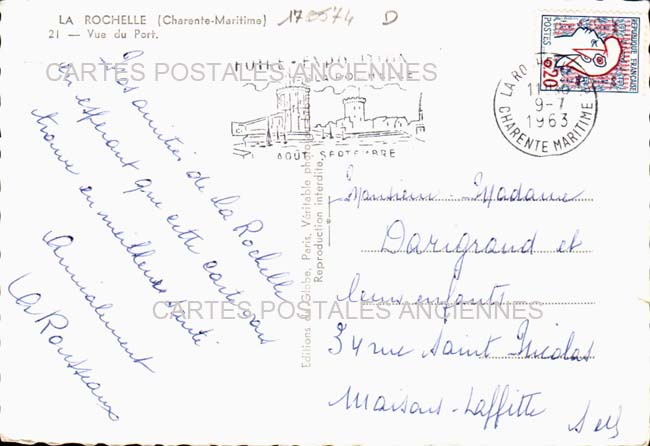 LA ROCHELLE (Charente-Maritime)
21 — Vue du Port.
178574 D
CARTES POSTALES ANCIENNES
POSTES
REPUBLIQUE FRANÇAISE
0,20
LA ROCHELLE
9-7
1963
CHARENTE MARITIME
AOUT SEPTEMBRE
Nos amitiés de La Rochelle
en espérant que cette carte vous
trouve en meilleure santé
Amicalement
Editions du Globe, Paris. Véritable photo
Reproduction interdite.
Monsieur - Madame
Darigrand et
leurs enfants
CARTES POSTALES ANCIENNES
34 rue Saint Nicolas
Maisons-Laffitte